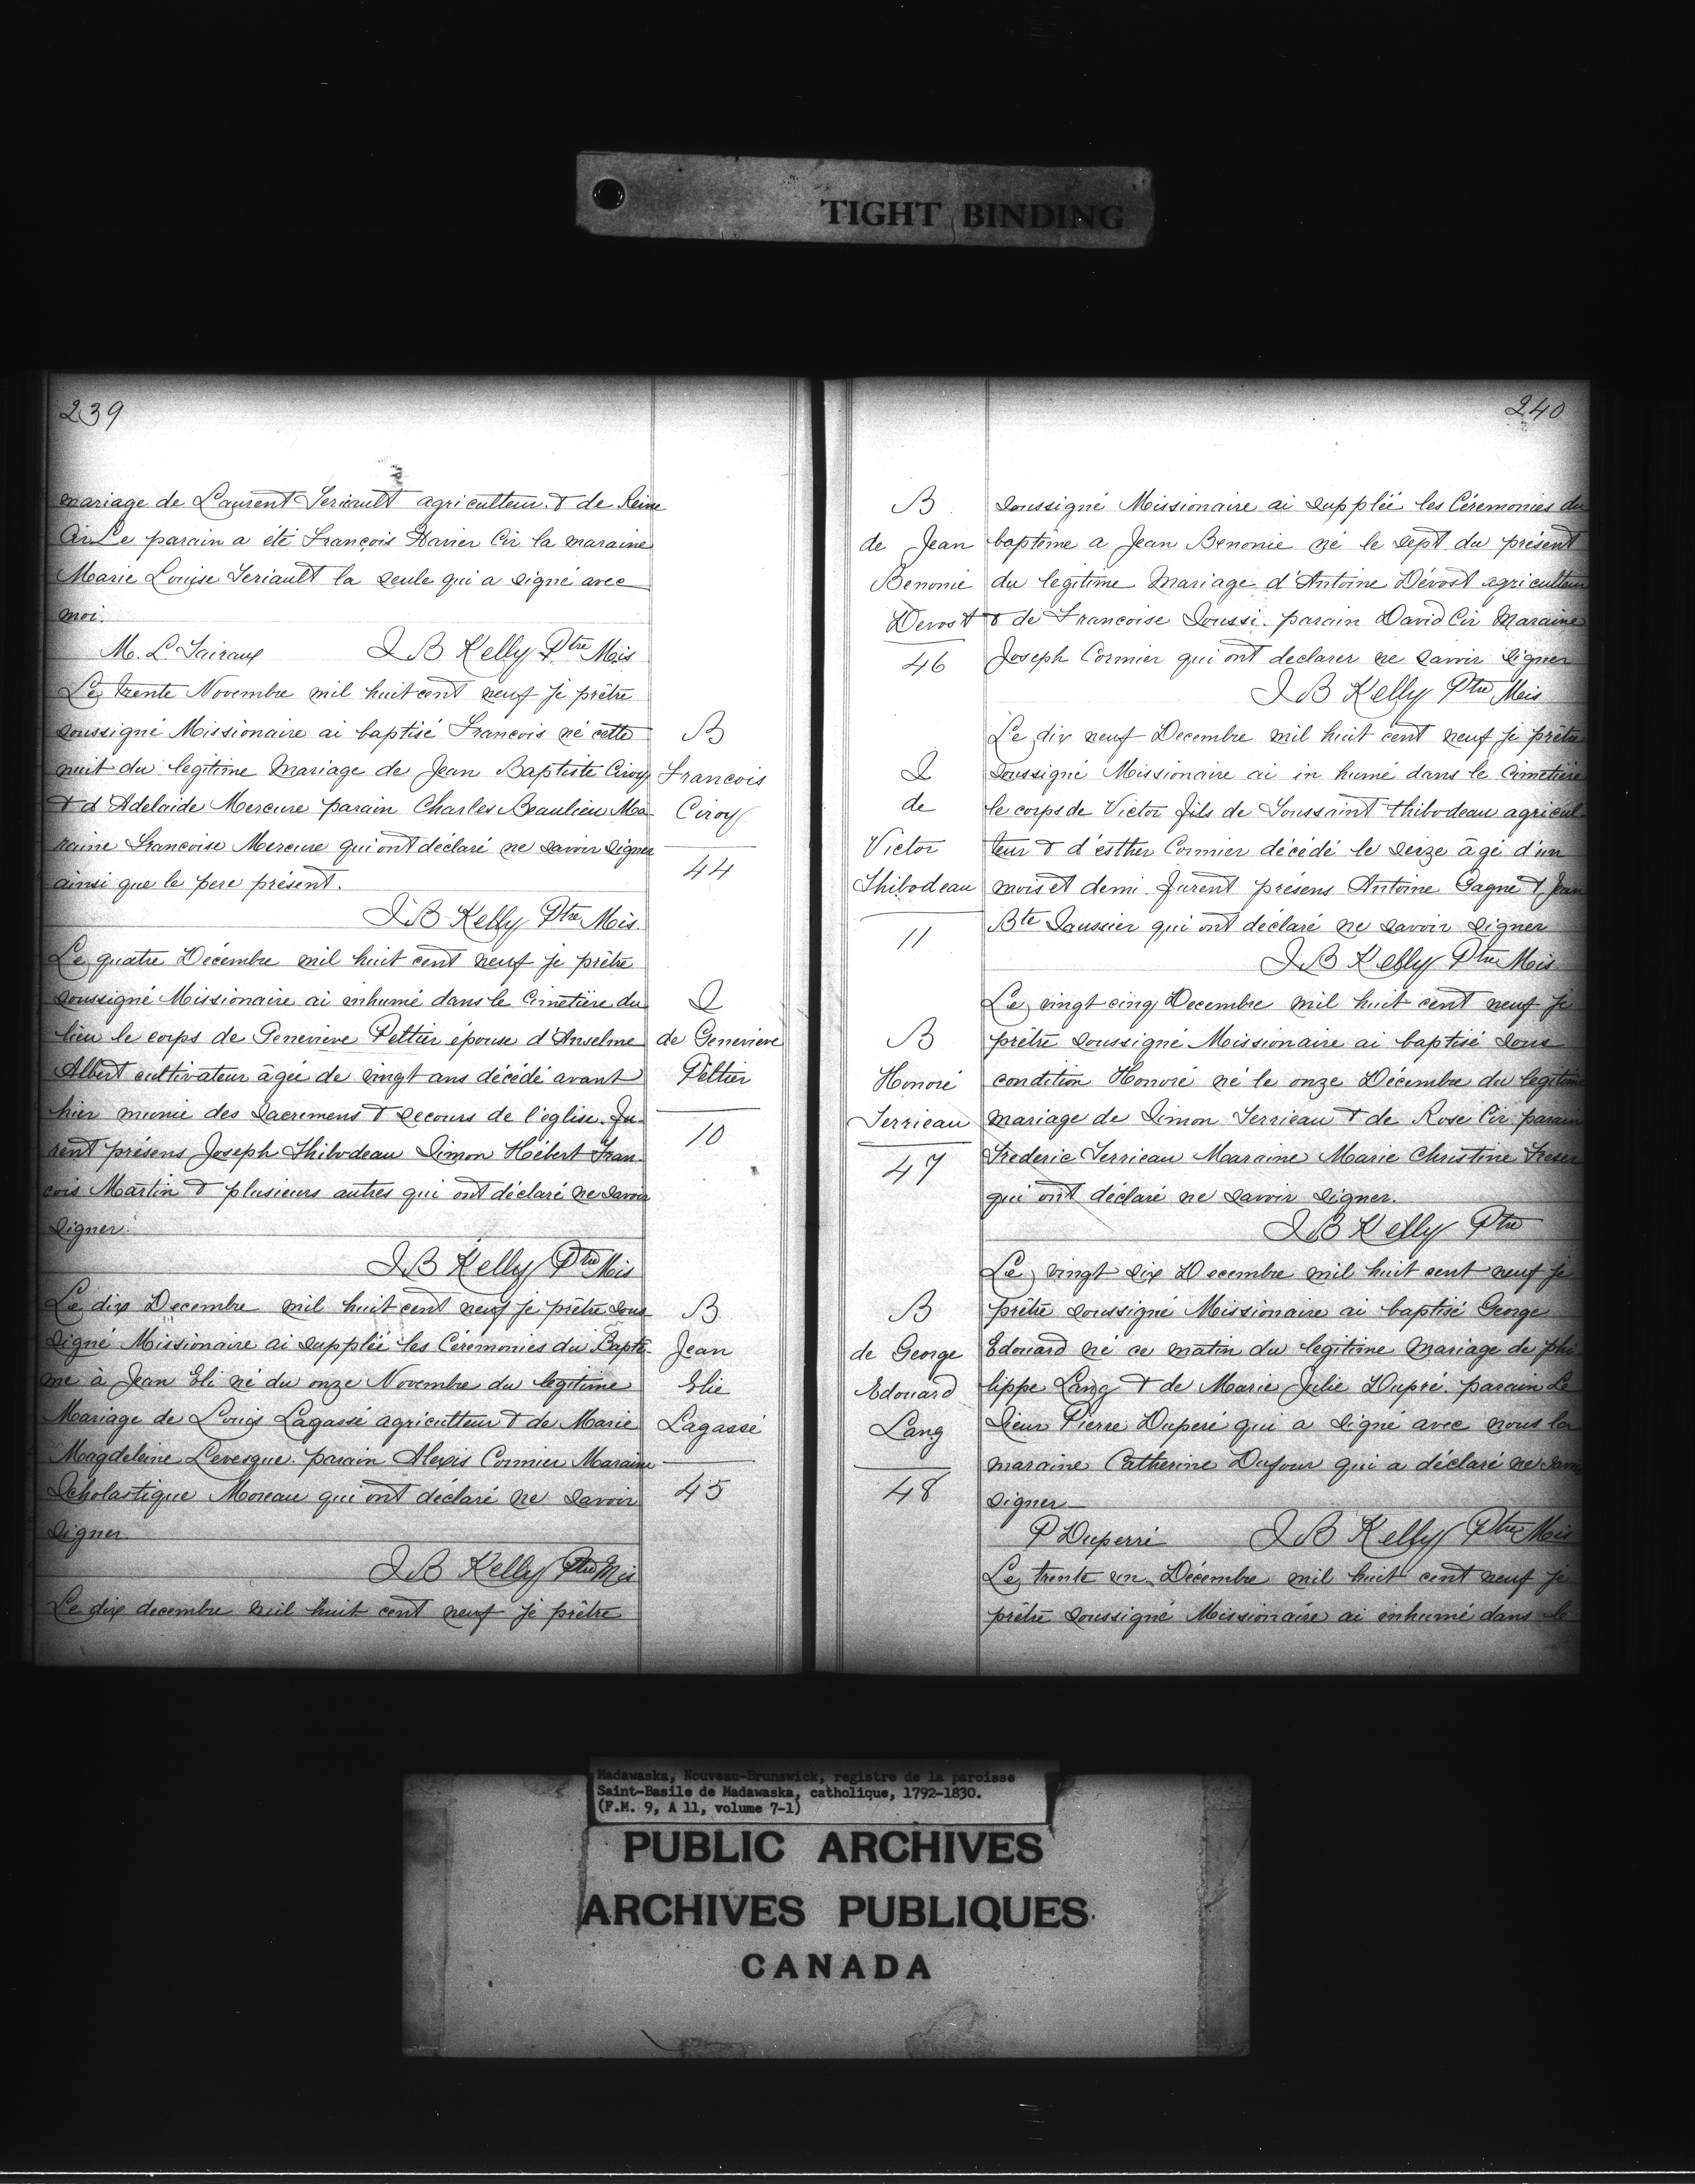 TIGHT BINDING
239
mariage de Laurent Teriault agriculteur & de Reine
Cir Le parain a été François Xavier Cir la maraine
Marie Louise Teriault la seule qui a signé avec
moi.
M. L. Tairaux J B Kelly Ptre Mis
Le trente Novembre mil huit cent neuf je prêtre
soussigné Missionaire ai baptisé Francois né cette
nuit du legitime Mariage de Jean Baptiste Ciroy
& d Adelaide Mercure parain Charles Beaulieu Ma-
raine Francoise Mercure qui ont déclaré ne savoir signer
ainsi que le pere présent.
J B Kelly Ptre Mis.
B
Francois
Ciroy
44
Le quatre Décembre mil huit cent neuf je prêtre
soussigné Missionaire ai inhumé dans le Cimetière du
lieu le corps de Genevieve Peltier épouse d'Anselme
Albert cultivateur âgée de vingt ans décédé avant
hier munie des Sacremens & secours de l'église. Fu-
rent présens Joseph Thibodeau Simon Hébert Fran-
cois Martin & plusieurs autres qui ont déclaré ne savoir
signer.
J B Kelly Ptre Mis
I
de Genevieve
Peltier
10
Le dix Decembre mil huit cent neuf je prêtre sous
signé Missionaire ai supplée les Céremonies du Baptê-
me à Jean Eli né du onze Novembre du legitime
Mariage de Louis Lagassé agriculteur & de Marie
Magdeleine Levesque. parain Alexis Cormier Maraine
Scholastique Moreau qui ont déclaré ne savoir
signer.
J B Kelly Ptre Mis
B
Jean
Elie
Lagassé
45
Le dix decembre mil huit cent neuf je prêtre
240
B
de Jean
Benonie
Devost
46
soussigné Missionaire ai supplée les Céremonies du
baptême a Jean Benonie né le sept du présent
du legitime Mariage d'Antoine Dévost agriculteur
& de Francoise Soussi. parain David Cir Maraine
Joseph Cormier qui ont declarer ne savoir signer
J B Kelly Ptre Mis
I
de
Victor
Thibodeau
11
Le dix neuf Decembre mil huit cent neuf je prêtre
soussigné Missionaire ai in humé dans le Cimetière
le corps de Victor fils de Toussaint thibodeau agricul-
teur & d'esther Cormier décédé le seize âgé d'un
mois et demi. Furent présens Antoine Gagne & Jean
Bte Saussier qui ont déclaré ne savoir signer
J B Kelly Ptre Mis
B
Honoré
Terrieau
47
Le vingt cinq Decembre mil huit cent neuf je
prêtre soussigné Missionaire ai baptisé sous
condition Honoré né le onze Décembre du legitime
mariage de Simon Terrieau & de Rose Cir parain
Frederic Terrieau Maraine Marie Christine
qui ont déclaré ne savoir signer.
J B Kelly Ptre
B
de George
Edouard
Lang
48
Le vingt six Decembre mil huit cent neuf je
prêtre soussigné Missionaire ai baptisé George
Edouard né ce matin du legitime Mariage de phi-
lippe Lang & de Marie Julie Dupré. parain Le
Sieur Pierre Duperé qui a signé avec nous la
maraine Catherine Dufour qui a déclaré ne savoir
signer
P Duperré J B Kelly Ptre Mis
Le trente un Décembre mil huit cent neuf je
prêtre soussigné Missionaire ai inhumé dans le
Madawaska, Nouveau-Brunswick, registre de la paroisse
Saint-Basile de Madawaska, catholique, 1792-1830.
(F.M. 9, A 11, volume 7-1)
PUBLIC ARCHIVES
ARCHIVES PUBLIQUES
CANADA